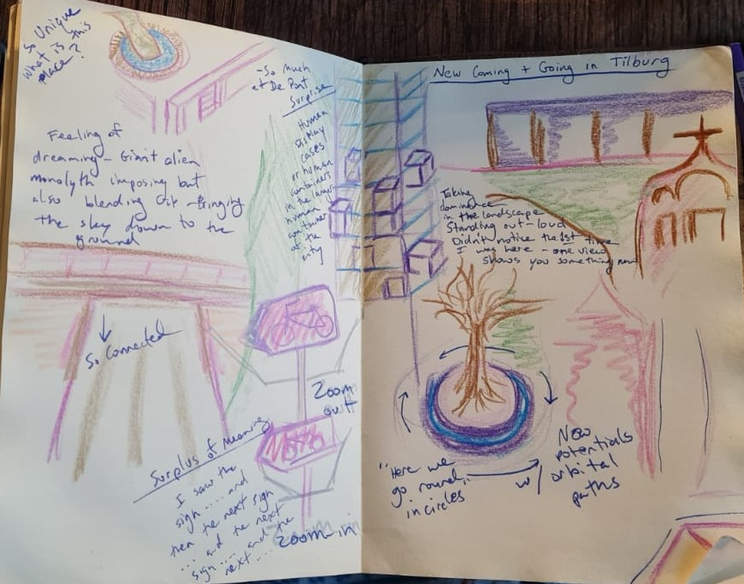 So Unique
what is this
place?
- So much
at De Pont
Surprise
Feeling of
dreaming - Giant alien
monolyth imposing but
also blending in - Bringing
the sky down to the
ground
Human
Display
cases
or human
containers
in the larger
human
container
of the
city
So Connected
Zoom
out
Surplus of Meaning
I saw the
sign .... and
then the next sign
... and the next
sign ... and the
next ...
Zoom in
New Coming + Going in Tilburg
Taking
dominance
in the landscape
Standing out - loud
Didn't notice the 1st time
I was here - one view
shows you something new
"Here we
go round,
in circles
w/
New
potentials
orbital
paths